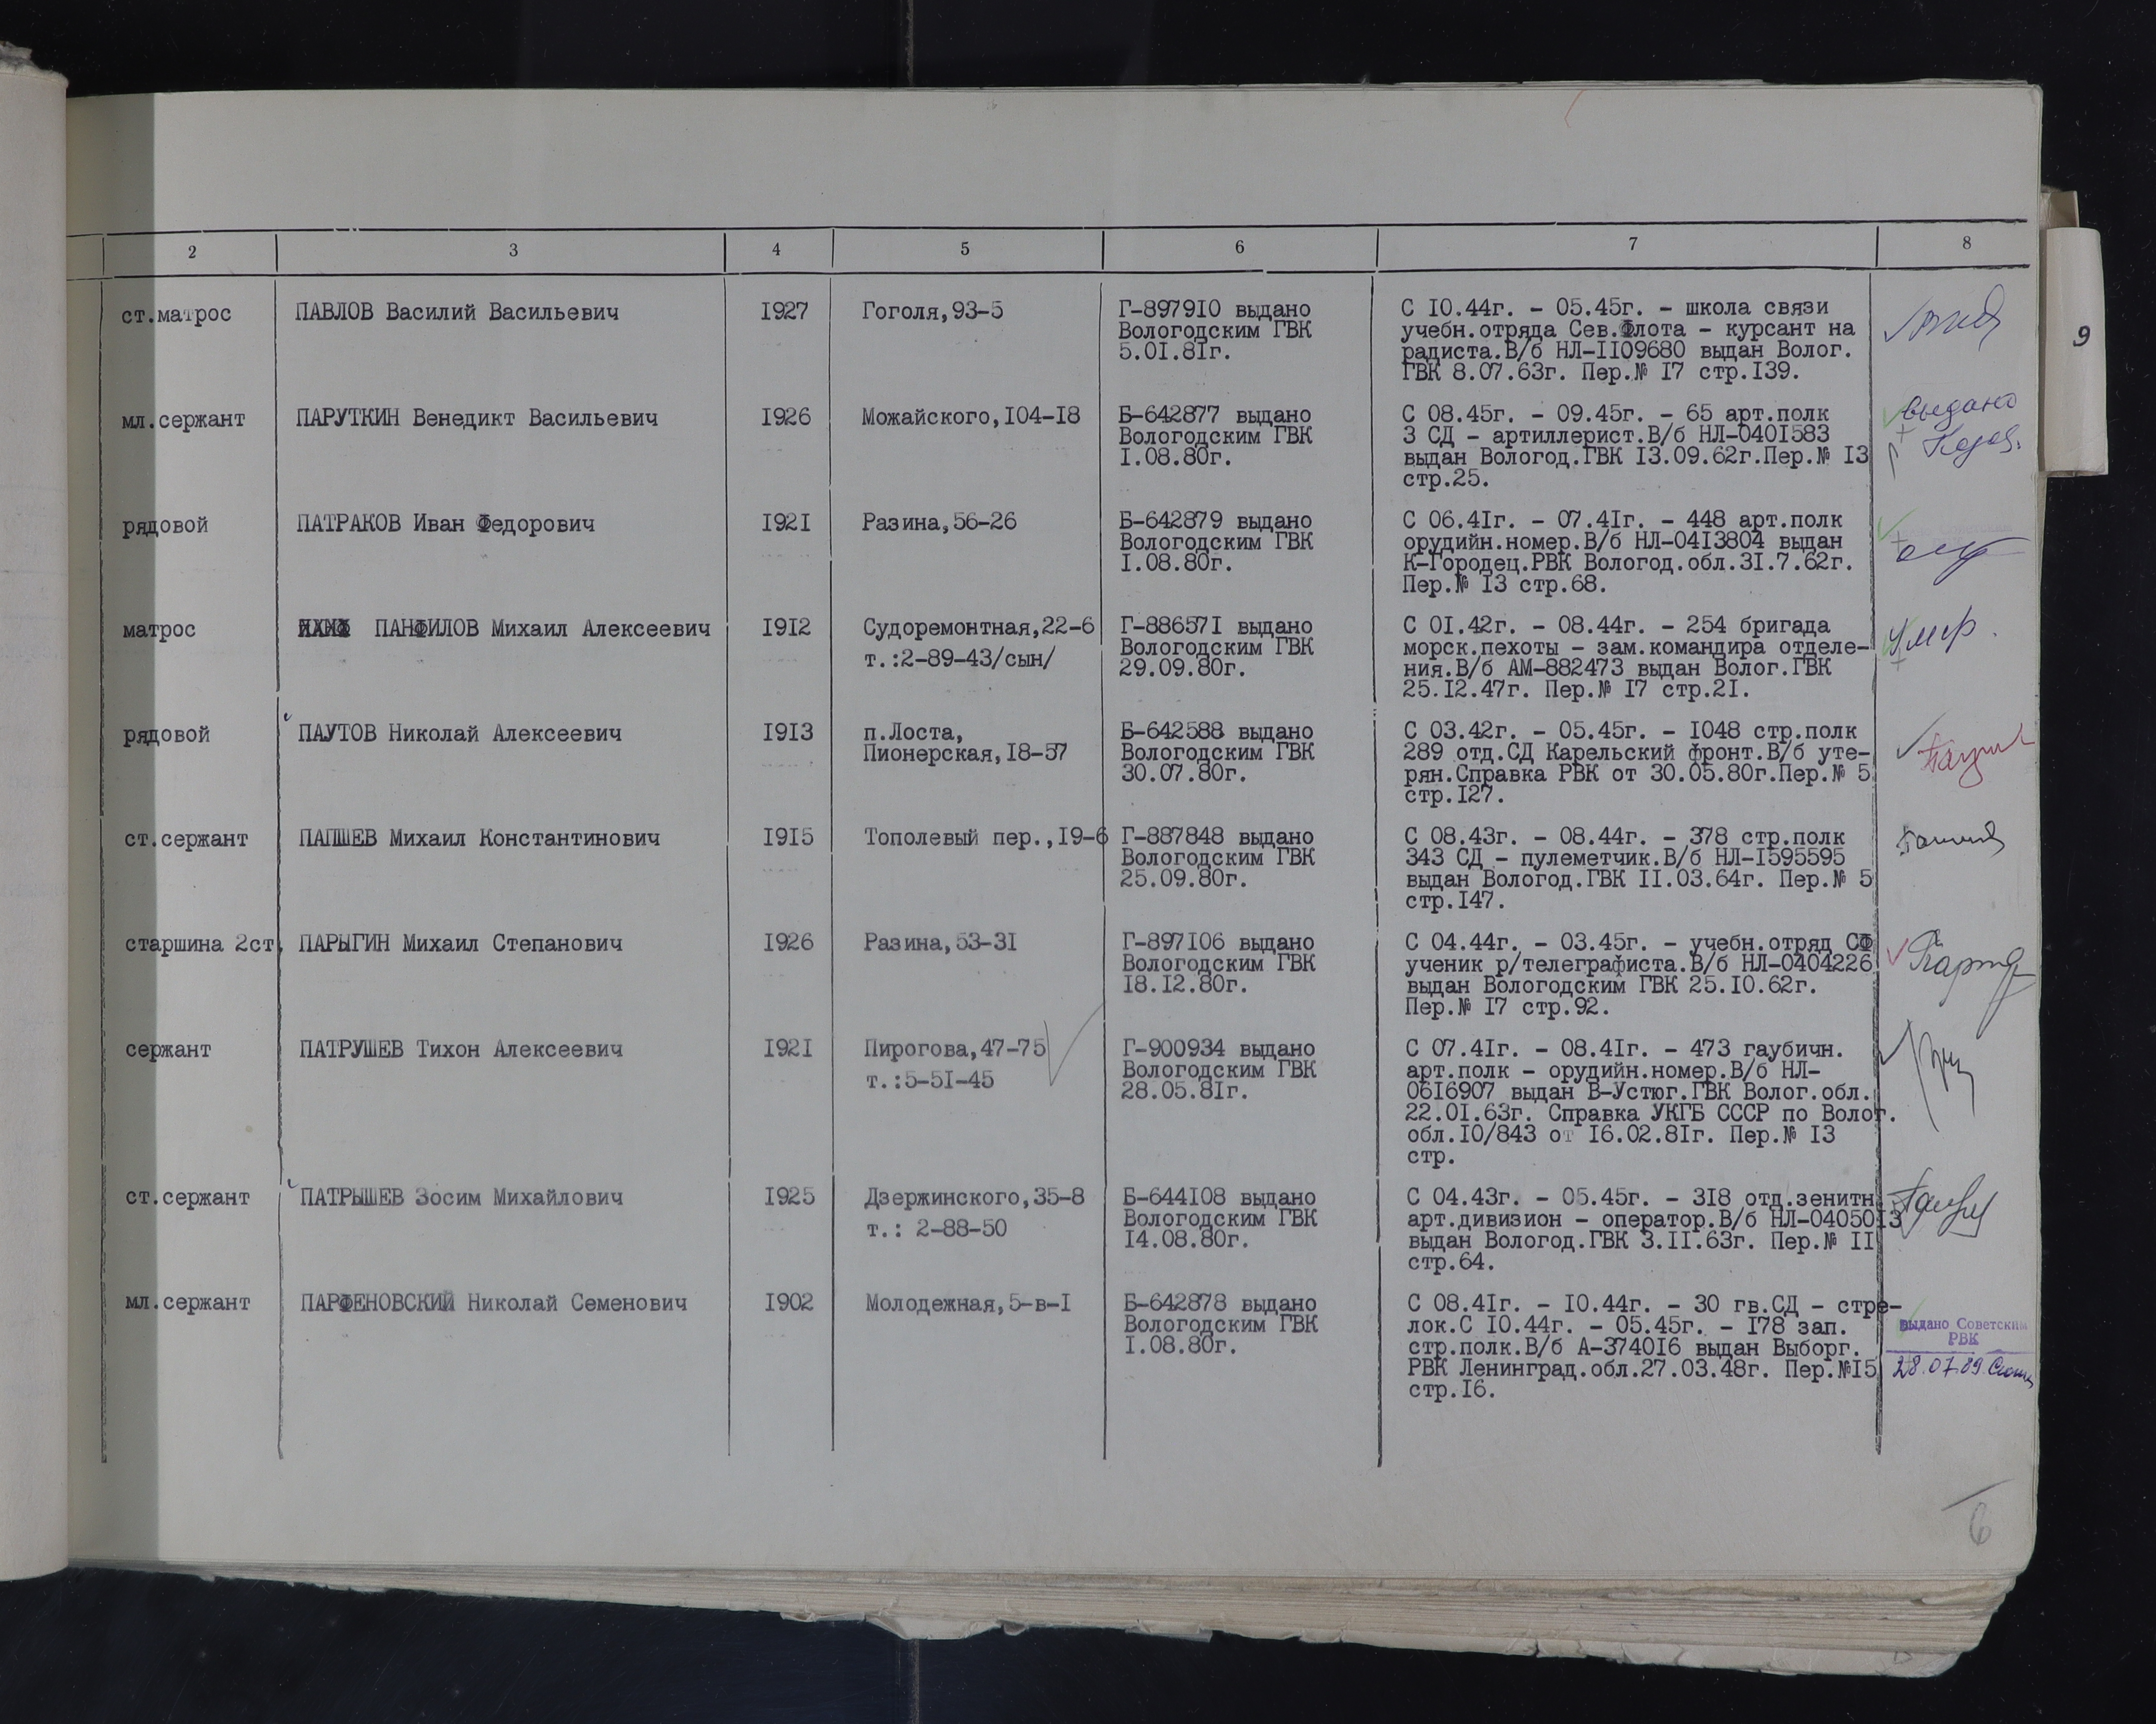 2 3 4 5 6 7 8
ст.матрос ПАВЛОВ Василий Васильевич 1927 Гоголя,93-5 Г-897910 выдано С 10.44г. - 05.45г. - школа связи
Вологодским ГВК учебн.отряда Сев.Флота - курсант на
5.01.81г. радиста.В/б НЛ-1109680 выдан Волог.
ГВК 8.07.63г. Пер.№ 17 стр.139.
9
мл.сержант ПАРУТКИН Венедикт Васильевич 1926 Можайского,104-18 Б-642877 выдано С 08.45г. - 09.45г. - 65 арт.полк выдано
Вологодским ГВК 3 СД - артиллерист.В/б НЛ-0401583
1.08.80г. выдан Вологод.ГВК 13.09.62г.Пер.№ 13
стр.25.
рядовой ПАТРАКОВ Иван Федорович 1921 Разина,56-26 Б-642879 выдано С 06.41г. - 07.41г. - 448 арт.полк
Вологодским ГВК орудийн.номер.В/б НЛ-0413804 выдан
1.08.80г. К-Городец.РВК Вологод.обл.31.7.62г.
Пер.№ 13 стр.68.
матрос ПАНФИЛОВ Михаил Алексеевич 1912 Судоремонтная,22-6 Г-886571 выдано С 01.42г. - 08.44г. - 254 бригада умер.
т.:2-89-43/сын/ Вологодским ГВК морск.пехоты - зам.командира отделе-
29.09.80г. ния.В/б АМ-882473 выдан Волог.ГВК
25.12.47г. Пер.№ 17 стр.21.
рядовой ПАУТОВ Николай Алексеевич 1913 п.Лоста, Б-642588 выдано С 03.42г. - 05.45г. - 1048 стр.полк
Пионерская,18-57 Вологодским ГВК 289 отд.СД Карельский фронт.В/б уте-
30.07.80г. рян.Справка РВК от 30.05.80г.Пер.№ 5
стр.127.
ст.сержант ПАПШЕВ Михаил Константинович 1915 Тополевый пер.,19-6 Г-887848 выдано С 08.43г. - 08.44г. - 378 стр.полк
Вологодским ГВК 343 СД - пулеметчик.В/б НЛ-1595595
25.09.80г. выдан Вологод.ГВК 11.03.64г. Пер.№ 5
стр.147.
старшина 2ст. ПАРЫГИН Михаил Степанович 1926 Разина,53-31 Г-897106 выдано С 04.44г. - 03.45г. - учебн.отряд СФ
Вологодским ГВК ученик р/телеграфиста.В/б НЛ-0404226
18.12.80г. выдан Вологодским ГВК 25.10.62г.
Пер.№ 17 стр.92.
сержант ПАТРУШЕВ Тихон Алексеевич 1921 Пирогова,47-75 Г-900934 выдано С 07.41г. - 08.41г. - 473 гаубичн.
т.:5-51-45 Вологодским ГВК арт.полк - орудийн.номер.В/б НЛ-
28.05.81г. 0616907 выдан В-Устюг.ГВК Волог.обл.
22.01.63г. Справка УКГБ СССР по Волог.
обл.10/843 от 16.02.81г. Пер.№ 13
стр.
ст.сержант ПАТРЫШЕВ Зосим Михайлович 1925 Дзержинского,35-8 Б-644108 выдано С 04.43г. - 05.45г. - 318 отд.зенитн
т.: 2-88-50 Вологодским ГВК арт.дивизион - оператор.В/б НЛ-0405013
14.08.80г. выдан Вологод.ГВК 3.11.63г. Пер.№ 11
стр.64.
мл.сержант ПАРФЕНОВСКИЙ Николай Семенович 1902 Молодежная,5-в-1 Б-642878 выдано С 08.41г. - 10.44г. - 30 гв.СД - стре-
Вологодским ГВК лок.С 10.44г. - 05.45г. - 178 зап. выдано Советским
1.08.80г. стр.полк.В/б А-374016 выдан Выборг. РВК
РВК Ленинград.обл.27.03.48г. Пер.№15 28.07.89.
стр.16.
6